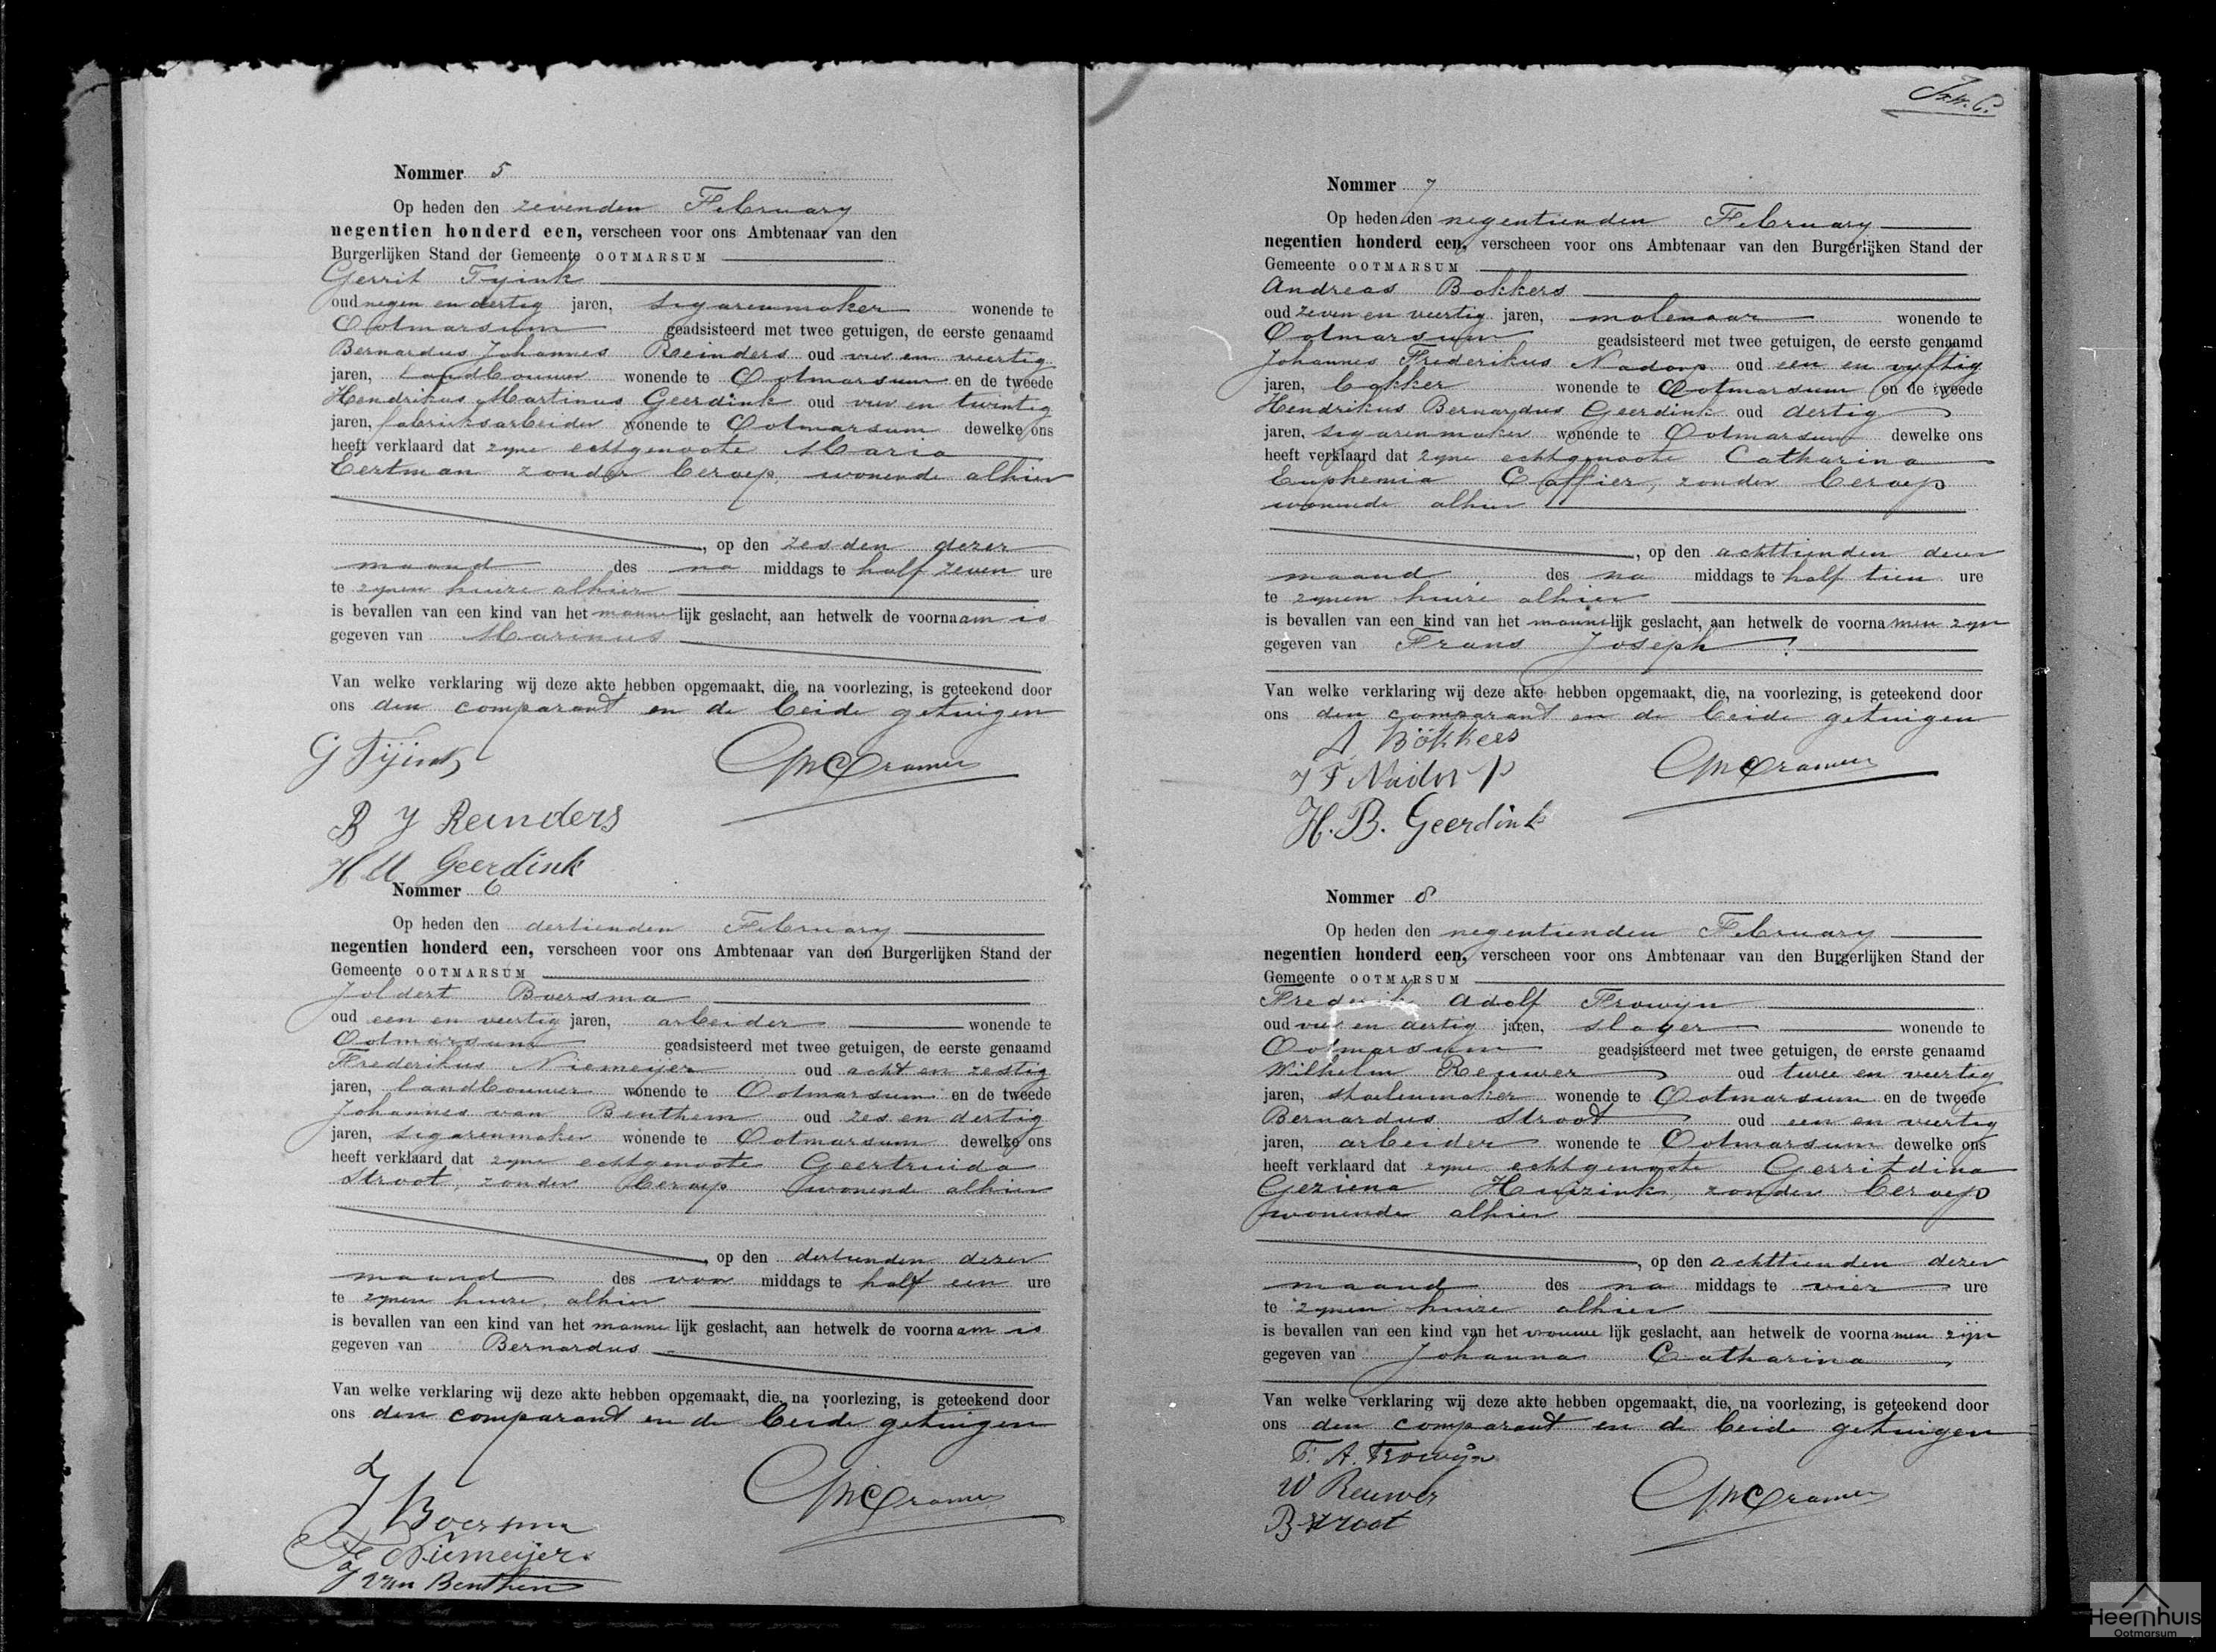 Nommer 5
Op heden den zevenden February
negentien honderd een, verscheen voor ons Ambtenaar van den
Burgerlijken Stand der Gemeente OOTMARSUM
Gerrit Tyink
oud negen en dertig jaren, sigarenmaker wonende te
Ootmarsum geadsisteerd met twee getuigen, de eerste genaamd
Bernardus Johannes Reinders oud vier en veertig
jaren, landbouwer wonende te Ootmarsum en de tweede
Hendrikus Martinus Geerdink oud vier en twintig
jaren, fabrieksarbeider wonende te Ootmarsum dewelke ons
heeft verklaard dat zyne echtgenoote Maria
Eertman zonder beroep, wonende alhier
, op den zesden dezer
maand des na middags te half zeven ure
te zynen huize alhier
is bevallen van een kind van het mannelijk geslacht, aan hetwelk de voornaam is
gegeven van Marinus
Van welke verklaring wij deze akte hebben opgemaakt, die, na voorlezing, is geteekend door
ons den comparant en de beide getuigen
G Tijink
Cramer
B J Reinders
H M Geerdink
Nommer 6
Op heden den dertienden February
negentien honderd een, verscheen voor ons Ambtenaar van den Burgerlijken Stand der
Gemeente OOTMARSUM
Joldert Boersma
oud een en veertig jaren, arbeider wonende te
Ootmarsum geadsisteerd met twee getuigen, de eerste genaamd
Frederikus Niemeijer oud acht en zestig
jaren, landbouwer wonende te Ootmarsum en de tweede
Johannes van Benthem oud zes en dertig
jaren, sigarenmaker wonende te Ootmarsum dewelke ons
heeft verklaard dat zyne echtgenoote Geertruida
Stroot, zonder beroep wonende alhier
, op den dertienden dezer
maand des voor middags te half een ure
te zynen huize, alhier
is bevallen van een kind van het mannelijk geslacht, aan hetwelk de voornaam is
gegeven van Bernardus
Van welke verklaring wij deze akte hebben opgemaakt, die, na voorlezing, is geteekend door
ons den comparant en de beide getuigen
J Boersma
Cramer
F Niemeijer
J van Benthem
Nommer 7
Op heden den negentienden February
negentien honderd een, verscheen voor ons Ambtenaar van den Burgerlijken Stand der
Gemeente OOTMARSUM
Andreas Bökkers
oud zeven en veertig jaren, molenaar wonende te
Ootmarsum geadsisteerd met twee getuigen, de eerste genaamd
Johannes Frederikus Nadorp oud een en vyftig
jaren, bakker wonende te Ootmarsum en de tweede
Hendrikus Bernardus Geerdink oud dertig
jaren, sigarenmaker wonende te Ootmarsum dewelke ons
heeft verklaard dat zyne echtgenoote Catharina
Euphemia Caffier, zonder beroep
wonende alhier
, op den achttienden dezer
maand des na middags te half tien ure
te zynen huize alhier
is bevallen van een kind van het mannelijk geslacht, aan hetwelk de voornamen zyn
gegeven van Frans Joseph
Van welke verklaring wij deze akte hebben opgemaakt, die, na voorlezing, is geteekend door
ons den comparant en de beide getuigen
A Bökkers
Cramer
J F Nadorp
H. B. Geerdink
Nommer 8
Op heden den negentienden February
negentien honderd een, verscheen voor ons Ambtenaar van den Burgerlijken Stand der
Gemeente OOTMARSUM
Frederik Adolf Frowijn
oud vier en dertig jaren, slager wonende te
Ootmarsum geadsisteerd met twee getuigen, de eerste genaamd
Wilhelm Reuwer oud twee en veertig
jaren, stoelenmaker wonende te Ootmarsum en de tweede
Bernardus Stroot oud een en veertig
jaren, arbeider wonende te Ootmarsum dewelke ons
heeft verklaard dat zyne echtgenoote Gerritdina
Geziena Huizink, zonder beroep
wonende alhier
, op den achttienden dezer
maand des na middags te vier ure
te zynen huize alhier
is bevallen van een kind van het vrouwelijk geslacht, aan hetwelk de voornamen zijn
gegeven van Johanna Catharina
Van welke verklaring wij deze akte hebben opgemaakt, die, na voorlezing, is geteekend door
ons den comparant en de beide getuigen
F. A. Frowijn
W Reuwer
Cramer
B Stroot
Heemhuis
Ootmarsum